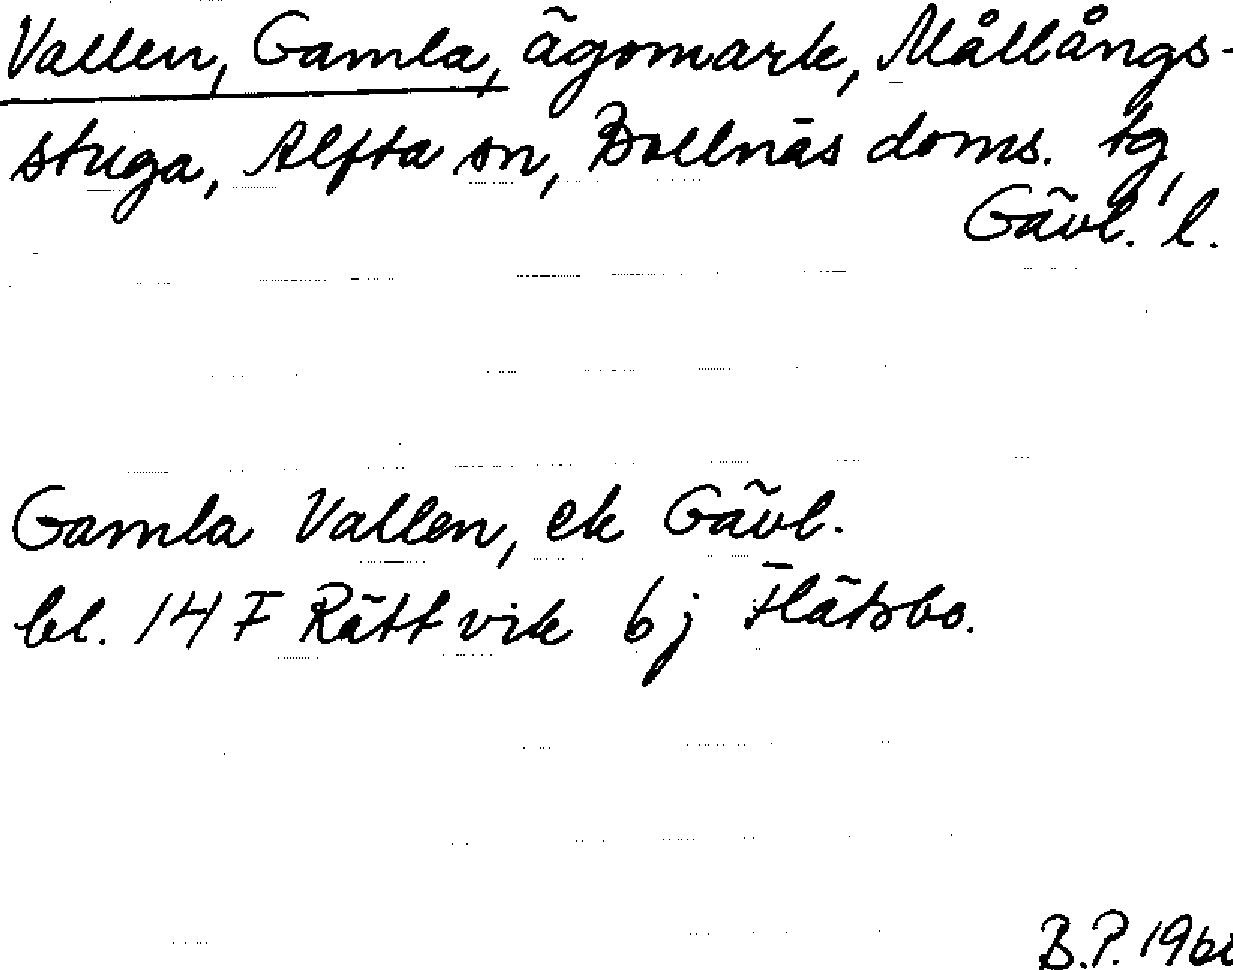 Vallen, Gamla, ägomark, Mållångs-
stuga, Alfta sn, Bollnäs doms. tg,
Gävl. l.
Gamla Vallen, ek Gävl.
bl. 14 F Rättvik 6j Flätsbo.
B.P.